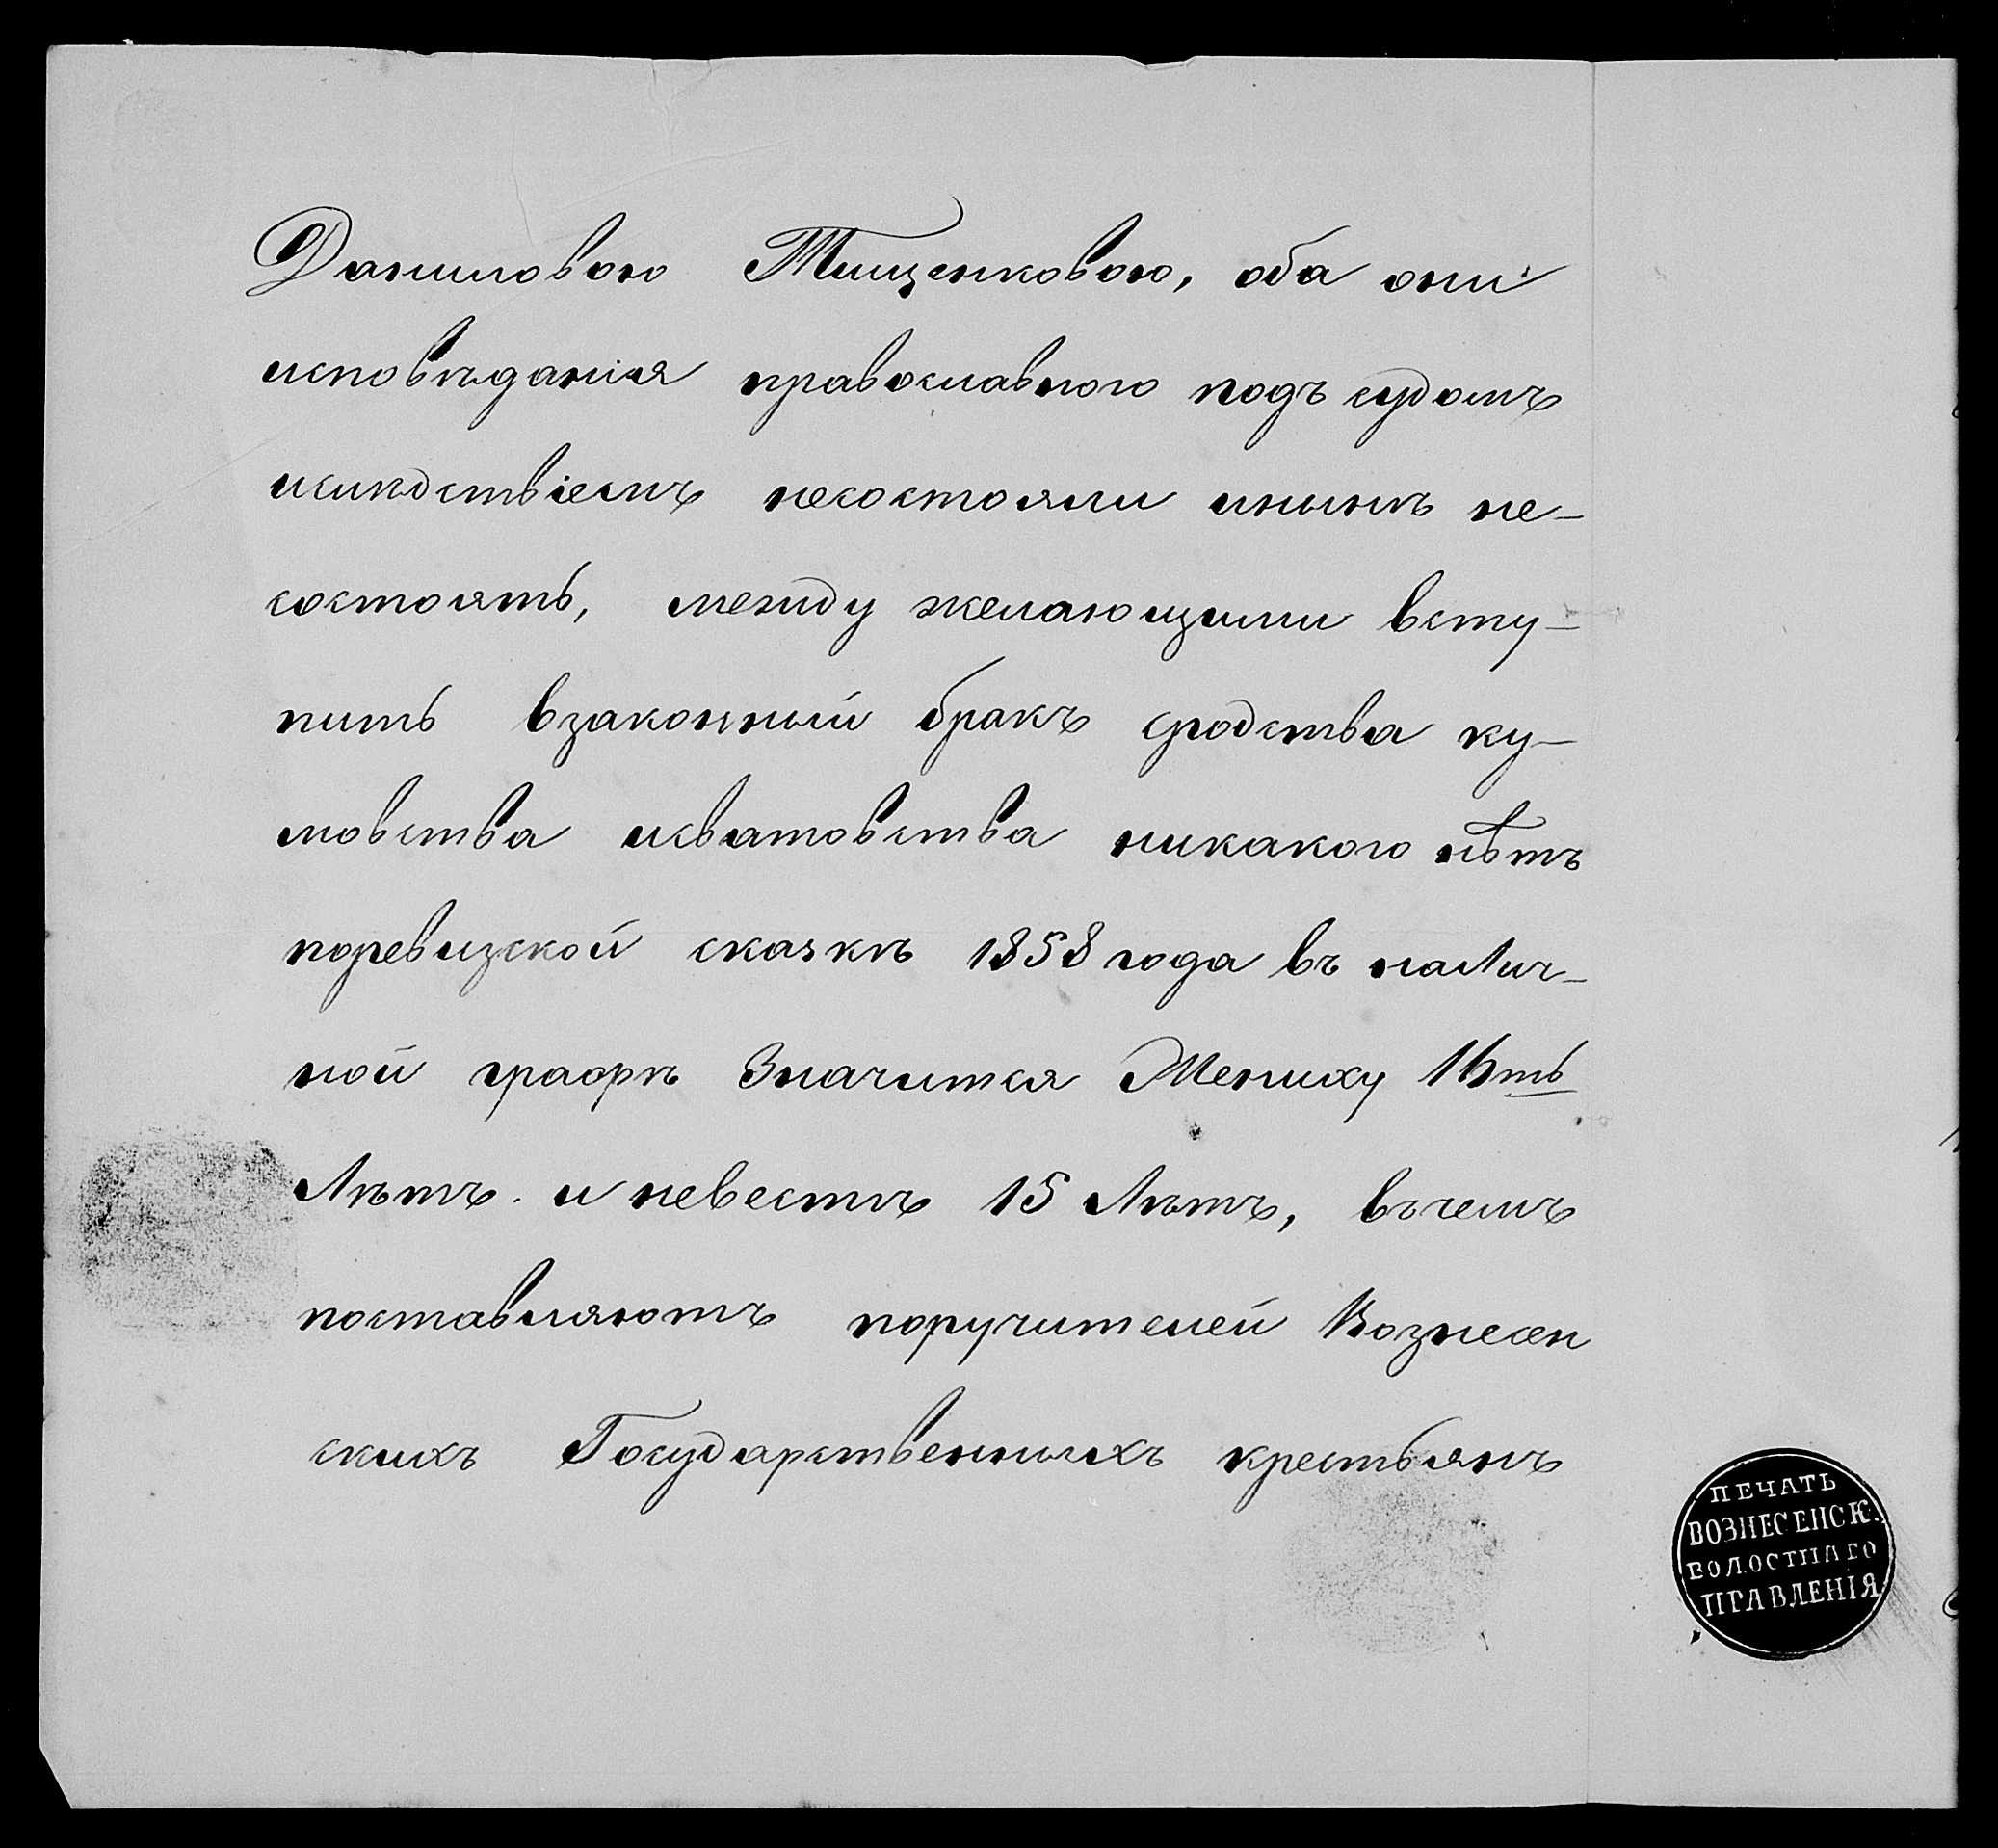 Даниловою Тищенковою, оба они
исповѣданія православного подъ судомъ
ислѣдствіемъ несостояли инынѣ не-
состоять, между желающими всту-
пить взаконный бракъ сродства ку-
мовства исватовства никакого нѣтъ
поревизской сказкѣ 1858 года въ налич-
ной графѣ Значится Жениху 16ть
Лѣтъ. и невестѣ 15 Лѣтъ, въчемъ
поставляютъ поручителей Вознесен
скихъ Государственныхъ крестьянъ
ПЕЧАТЬ
ВОЗНЕСЕНСК.
ВОЛОСТНАГО
ПРАВЛЕНІЯ